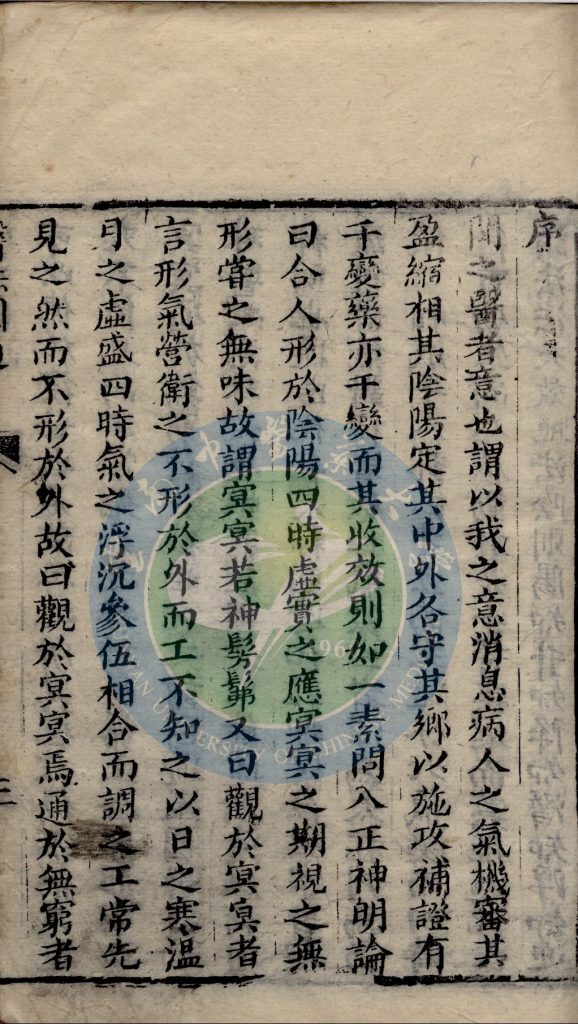 序
聞之醫者意也謂以我之意消息病人之氣機審其
盈縮相其陰陽定其中外各守其鄉以施攻補證有
千變藥亦千變而其收效則如一素問八正神明論
曰合人形於陰陽四時虛實之應㝠㝠之期視之無
形嘗之無味故謂㝠㝠若神髣髴又曰觀於㝠㝠者
言形氣營衛之不形於外而工不知之以日之寒温
月之虛盛四時氣之浮沉參伍相合而調之工常先
見之然而不形於外故曰觀於㝠㝠焉通於無窮者